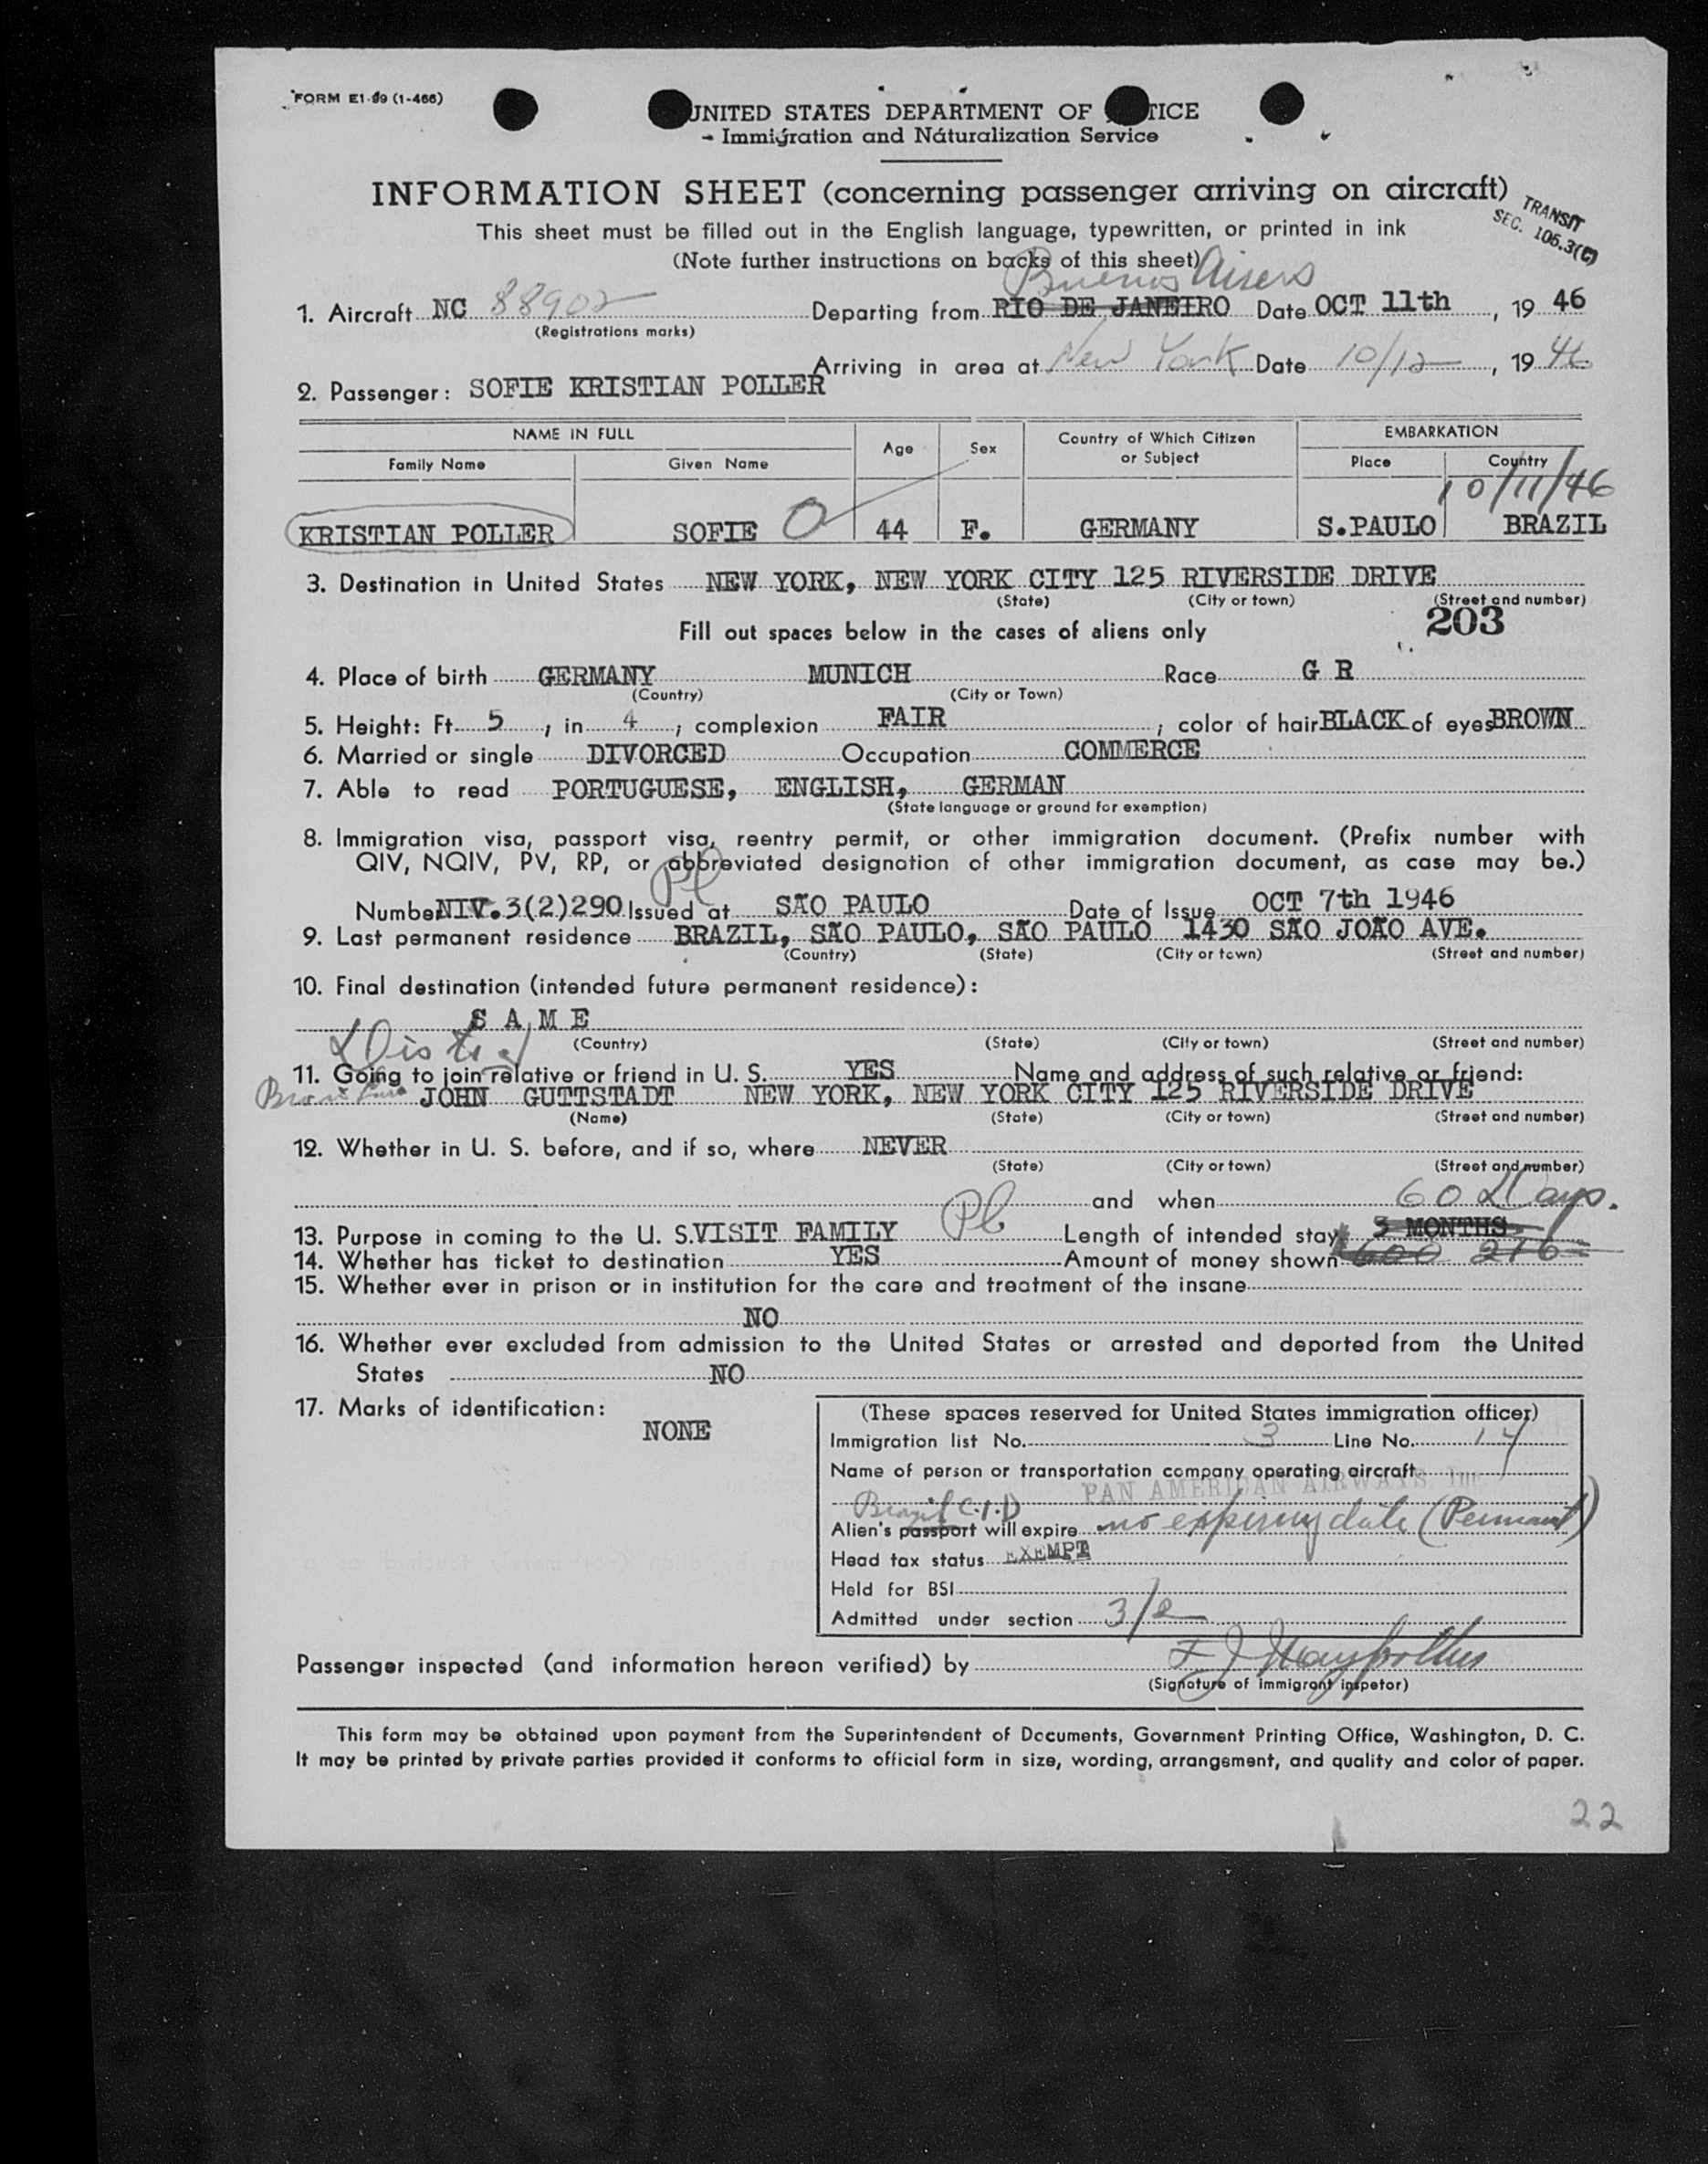 FORM E1-99 (1-466)
UNITED STATES DEPARTMENT OF TICE
Immigration and Naturalization Service
INFORMATION SHEET (concerning passenger arriving on aircraft)
TRANSIT
SEC. 106.3(C)
This sheet must be filled out in the English language, typewritten, or printed in ink
(Note further instructions on backs of this sheet)
Buenos Aisers
1. Aircraft NC 88902 Departing from RIO DE JANEIRO Date OCT 11th, 19 46
(Registrations marks)
Arriving in area at New York Date 10/12, 19 46
2. Passenger: SOFIE KRISTIAN POLLER
NAME IN FULL Age Sex Country of Which Citizen or Subject EMBARKATION
Family Name Given Name Place Country
10/11/46
KRISTIAN POLLER SOFIE 44 F. GERMANY S.PAULO BRAZIL
3. Destination in United States NEW YORK, NEW YORK CITY 125 RIVERSIDE DRIVE
(State) (City or town) (Street and number)
Fill out spaces below in the cases of aliens only
203
4. Place of birth GERMANY MUNICH Race G R
(Country) (City or Town)
5. Height: Ft. 5, in 4; complexion FAIR; color of hair BLACK of eyes BROWN
6. Married or single DIVORCED Occupation COMMERCE
7. Able to read PORTUGUESE, ENGLISH, GERMAN
(State language or ground for exemption)
8. Immigration visa, passport visa, reentry permit, or other immigration document. (Prefix number with
QIV, NQIV, PV, RP, or abbreviated designation of other immigration document, as case may be.)
Number NIV.3(2)290 Issued at SÃO PAULO Date of Issue OCT 7th 1946
9. Last permanent residence BRAZIL, SÃO PAULO, SÃO PAULO 1430 SÃO JOÃO AVE.
(Country) (State) (City or town) (Street and number)
10. Final destination (intended future permanent residence):
S A M E
(Country) (State) (City or town) (Street and number)
11. Going to join relative or friend in U. S. YES Name and address of such relative or friend:
JOHN GUTTSTADT NEW YORK, NEW YORK CITY 125 RIVERSIDE DRIVE
(Name) (State) (City or town) (Street and number)
12. Whether in U. S. before, and if so, where NEVER
(State) (City or town) (Street and number)
and when 60 Days.
13. Purpose in coming to the U. S. VISIT FAMILY Length of intended stay 3 MONTHS
14. Whether has ticket to destination YES Amount of money shown 600 216
15. Whether ever in prison or in institution for the care and treatment of the insane
NO
16. Whether ever excluded from admission to the United States or arrested and deported from the United
States NO
17. Marks of identification:
NONE
(These spaces reserved for United States immigration officer)
Immigration list No. 3 Line No. 14
Name of person or transportation company operating aircraft
PAN AMERICAN AIRWAYS Inc
Brazil C.I.D
Alien's passport will expire no expiring date (Permant)
Head tax status EXEMPT
Held for BSI
Admitted under section 3/2
Passenger inspected (and information hereon verified) by
(Signature of immigrant inspetor)
This form may be obtained upon payment from the Superintendent of Documents, Government Printing Office, Washington, D. C.
It may be printed by private parties provided it conforms to official form in size, wording, arrangement, and quality and color of paper.
22